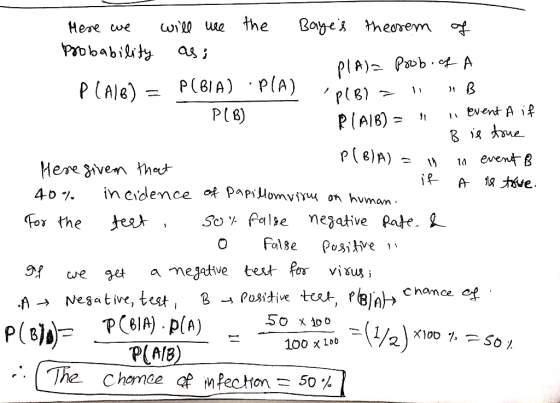 Here we will use the Baye's theorem of
Probability as;
P(A|B) = P(B|A) · P(A) / P(B)
P(A) = Prob. of A
P(B) = " " B
P(A|B) = " " event A if
B is true
P(B|A) = " " event B
if A is true.
Here given that
40% incidence of Papillomvirus on human.
For the test, 50% false negative Rate. &
0 False Positive "
If we get a negative test for virus;
A → Negative, test, B → Positive test, P(B|A) → chance of
P(B|A) = P(B|A) · P(A) / P(A|B) = 50 x 100 / 100 x 100 = (1/2) x 100 % = 50%
∴ The chance of infection = 50%